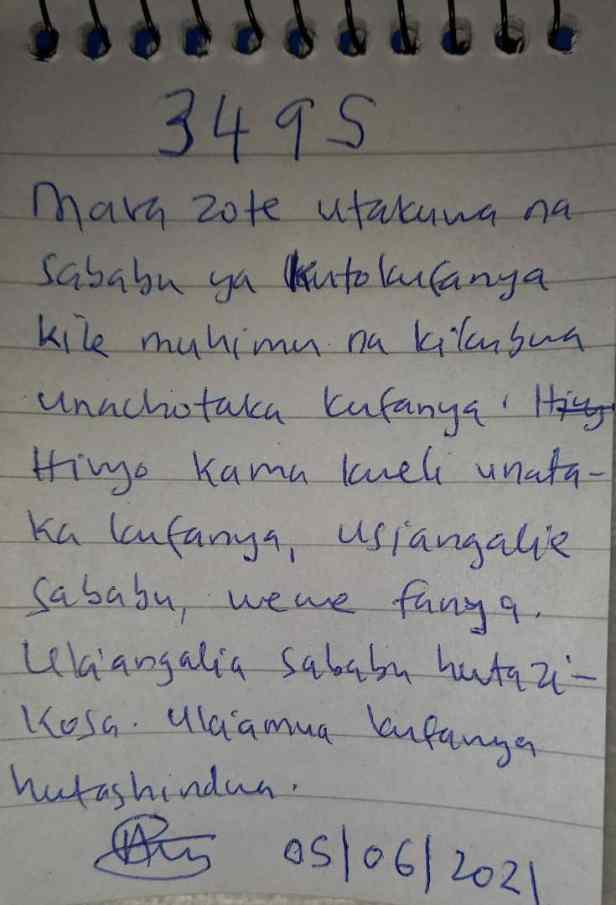 3495
Mara zote utakuwa na
sababu ya kutokufanya
kile muhimu na kikubwa
unachotaka kufanya. Hivy
Hivyo kama kweli unata-
ka kufanya, usiangalie
sababu, wewe fanya.
Ukiangalia sababu hutazi-
kosa. Ukiamua kufanya
hutashindwa.
05/06/2021